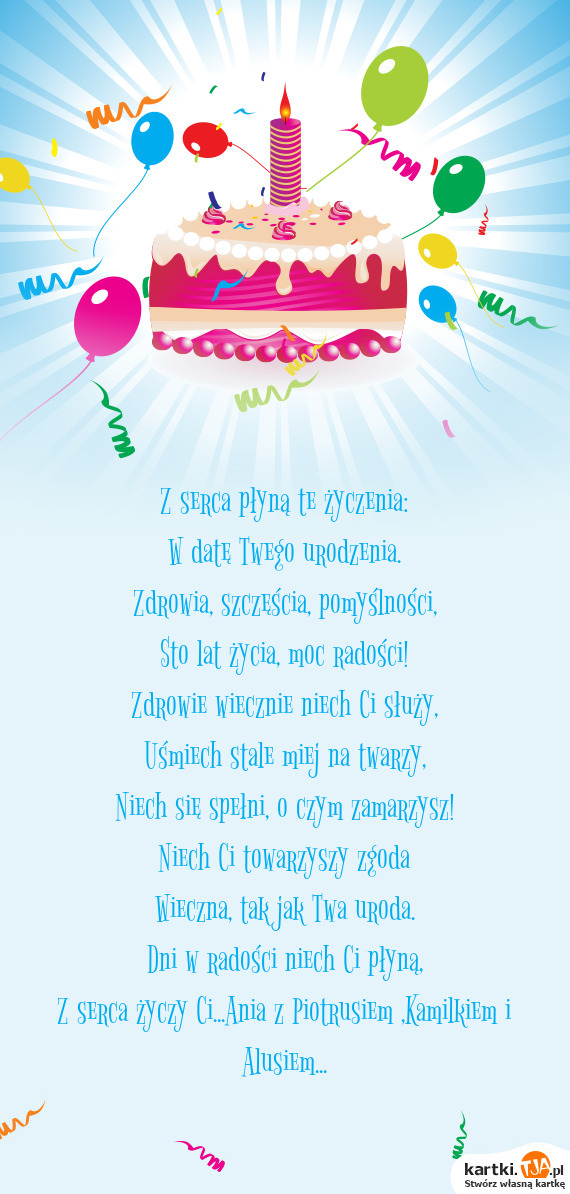 Z serca płyną te życzenia:
W datę Twego urodzenia.
Zdrowia, szczęścia, pomyślności,
Sto lat życia, moc radości!
Zdrowie wiecznie niech Ci służy,
Uśmiech stale miej na twarzy,
Niech się spełni, o czym zamarzysz!
Niech Ci towarzyszy zgoda
Wieczna, tak jak Twa uroda.
Dni w radości niech Ci płyną,
Z serca życzy Ci...Ania z Piotrusiem ,Kamilkiem i
Alusiem...
kartki.TJA.pl
Stwórz własną kartkę